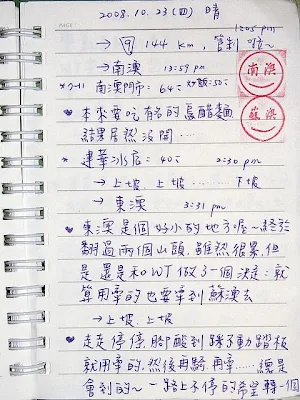 2008.10.23(四) 晴
12:05 pm
→ 9 144 km, 管制 啦~
→ 南澳 13:59 pm
南澳
*7-11 南澳門市: 64元 炒飯:50元
♥ 本來要吃有名的烏醋麵
結果居然沒開....
蘇澳
* 建華冰店: 40元 2:30 pm
→ 上坡、上坡........下坡
→ 東澳 3:31 pm
♥ 東澳是個好小的地方喔~終於
翻過兩個山頭,雖然很累,但
是還是和WT做了一個決定:就
算用牽的也要牽到蘇澳去
→ 上坡、上坡
♥ 走走停停,腳酸到踩不動踏板
就用牽的,然後再騎再牽.....總是
會到的~一路上不停的希望轉一個